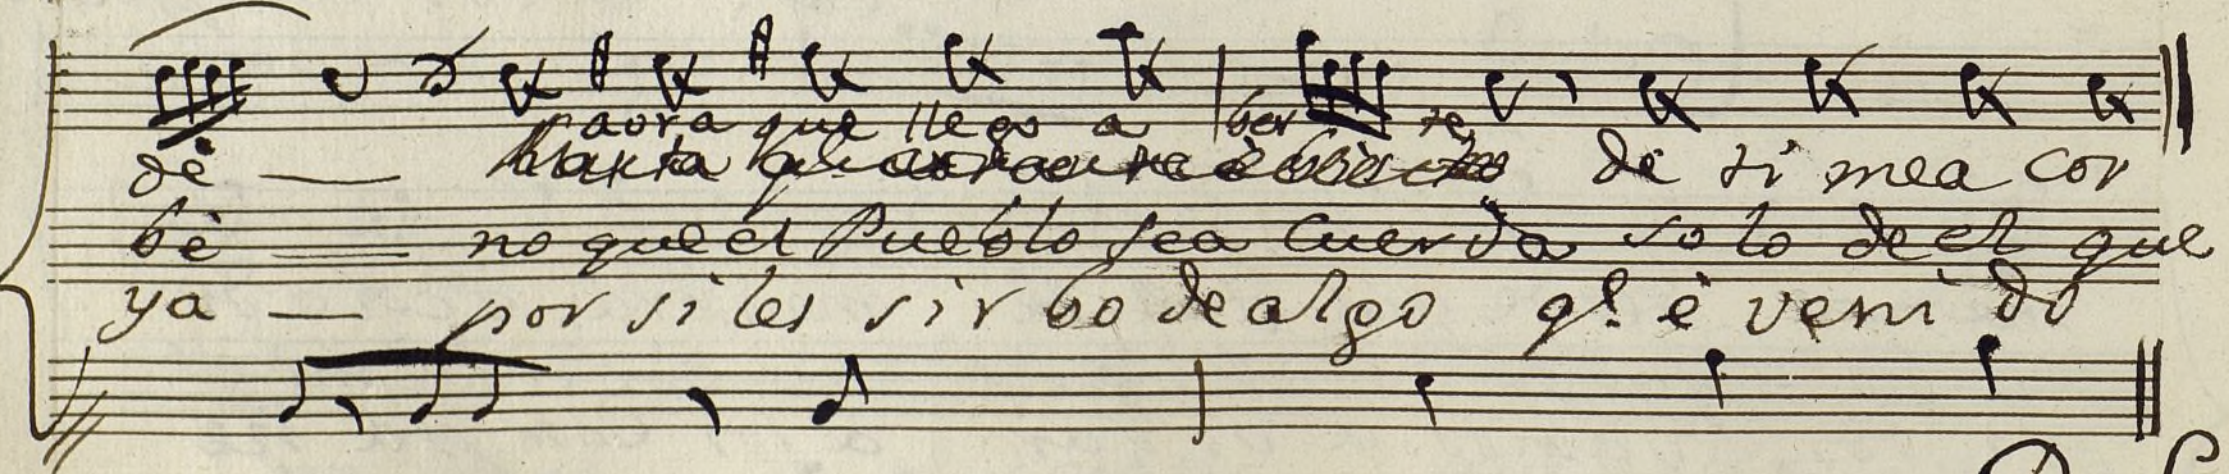 aora que llego a ber te
dè de ti mea cor
bè no que el Pueblo sea Cuerda so lo de el que
ya por si les sir bo de algo qe. è veni do